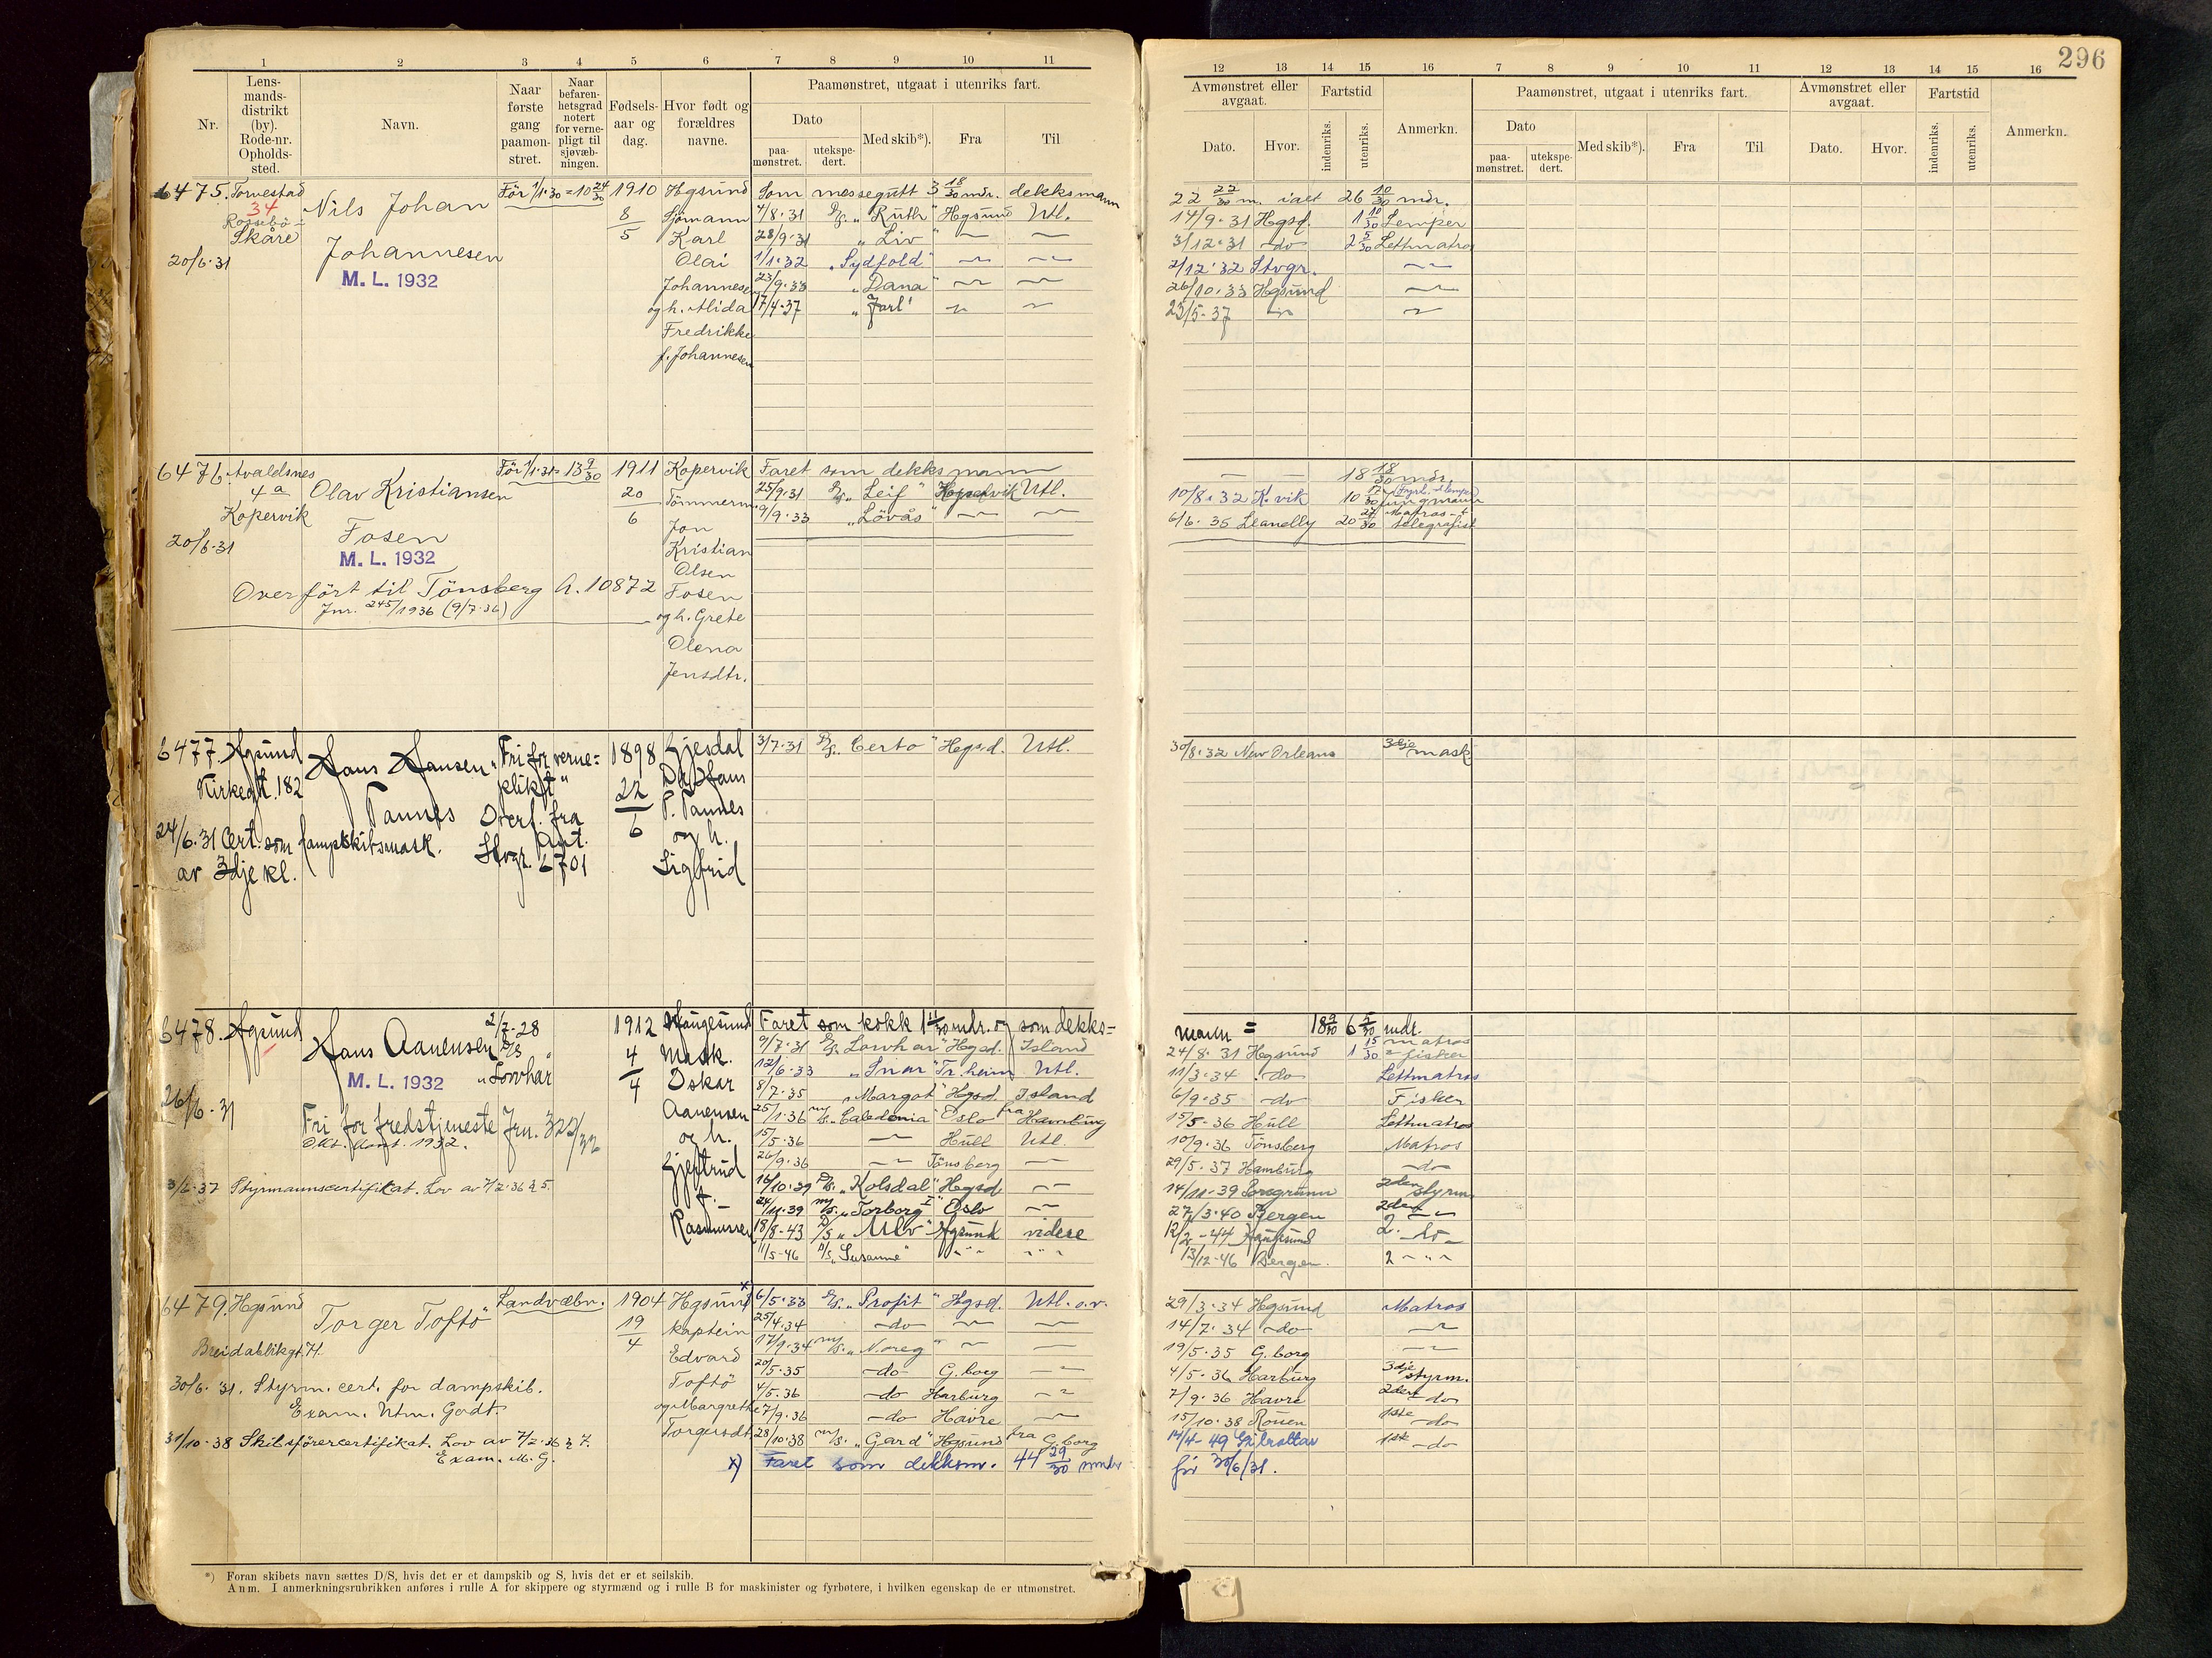 296
1 2 3 4 5 6 7 8 9 10 11
12 13 14 15 16 7 8 9 10 11 12 13 14 15 16
Nr.
Lens-
mands-
distrikt
(by).
Rode-nr.
Opholds-
sted.
Navn.
Naar
første
gang
paamøn-
stret.
Naar
befaren-
hetsgrad
notert
for verne-
pligt til
sjøvæb-
ningen.
Fødsels-
aar og
dag.
Hvor født og
forældres
navne.
Paamønstret, utgaat i utenriks fart.
Dato
paa-
mønstret.
utekspe-
dert.
Med skib*).
Fra
Til
Avmønstret eller
avgaat.
Dato.
Hvor.
Fartstid
indenriks.
utenriks.
Anmerkn.
Paamønstret, utgaat i utenriks fart.
Dato
paa-
mønstret.
utekspe-
dert.
Med skib*).
Fra
Til
Avmønstret eller
avgaat.
Dato.
Hvor.
Fartstid
indenriks.
utenriks.
Anmerkn.
6475. Torvestad
34
Rossebö-
Skåre
20/6-31
Nils Johan
Johannesen
M. L. 1932
För 1/1-30 = 10 24/30
1910
8/5
Hgsund
Sjømann
Karl
Olai
Johannesen
og h. Alida
Fredrikke
f. Johannesen
Som messegutt 3 18/30 mdr. dekksmann
4/8-31 D/S. "Ruth" Hgsund Utl.
28/9-31 "Liv" — —
1/1-32 "Sydfold" — —
23/9-33 "Dana" — —
17/4-37 "Jarl" — —
22 22/30 m. ialt 26 10/30 mdr.
14/9-31 Hgsd. 1 10/30 Lemper
3/12-31 -do- 2 5/30 Lettmatros
2/12-32 Stvgr. —
26/10-33 Hgsund —
23/5-37 — —
6476. Avaldsnes
4a
Kopervik
20/6-31
Olav Kristiansen
Fosen
M. L. 1932
För 1/1-31 = 13 9/30
1911
20/6
Kopervik
Tömmerm.
Jon
Kristian
Olsen
Fosen
og h. Grete
Olena
Jensdtr.
Overfört til Tönsberg A. 10872
Jnr. 245/1936 (9/7-36)
Faret som dekksmann
25/9-31 D/S. "Leif" Kopervik Utl.
9/9-33 "Lövås" — —
— — 18 18/30 mdr.
10/8-32 K.vik 10 Jungmann
6/6-35 Llanelly 20 Matros +
telegrafist
6477. Hgsund
Kirkegt. 182
Hans Hansen
Tannes
"Fri for verne-
plikt"
Overf. fra
Stvgr. Ant.
6701
24/6-31 Cert. som dampskibsmask.
av 3dje kl.
1898
22/6
Gjesdal
Hans
P. Tannes
og h.
Sigfrid
3/7-31 D/S. "Certo" Hgsd. Utl.
30/8-32 New Orleans 3dje mask
6478. Hgsund
26/6-31
Hans Aanensen
M. L. 1932
2/7-28
D/S
"Lowhar"
1912
4/4
Haugesund
Mask.
Oskar
Aanensen
og h.
Gjertrud
f.
Rasmussen
Fri for fredstjeneste Jnr. 325/32
3/6-37 Styrmannscertifikat. Lov av 7/2-36 § 5.
Faret som kokk 1 11/30 mdr. og som dekks-
9/7-31 D/S. "Lowhar" Hgsd. Island
12/6-33 "Snar" Tr.heim Utl.
8/7-35 "Margot" Hgsd. Island
25/1-36 M/S. "Caledonia" Oslo fra Hamburg
15/5-36 — Hull Utl.
26/9-36 — Tönsberg —
16/10-39 D/S. "Kolsdal" Hgsd —
24/11-39 M/S. "Torborg" Oslo —
18/8-43 D/S "Ulv" Hgsund videre
11/5-46 D/S. "Susanne" — " — — " —
mann = 18 9/30 6 5/30 mdr.
24/8-31 Hgsund 1 15/30 matros
= fisker
11/3-34 -do- Lettmatros
6/9-35 -do- Fisker
15/5-36 Hull Lettmatros
10/9-36 Tönsberg Matros
29/5-37 Hamburg -do-
14/11-39 Porsgrunn 2den styrm
27/3-40 Bergen 2den —
12/2-44 Haugesund 2. -do-
13/12-46 Bergen. 2 — " —
6479. Hgsund
Breidablikgt.
Torger Toftö
Landvæbn.
1904
19/4
Hgsund
Kaptein
Edvard
Toftö
og Margrethe
Torgersdtr.
30/6-31. Styrm. cert. for dampskib.
Exam. Utm. Godt.
31/10-38 Skibsförercertifikat. Lov av 7/2-36 § 7.
Exam. M. G.
x)
6/5-33 D/S. "Profit" Hgsd. Utl. o.r.
25/4-34 -do- — —
17/9-34 M/S. "Noreg" — —
20/5-35 -do- G.borg —
4/5-36 -do- Harburg —
7/9-36 -do- Havre —
28/10-38 M/S. "Gard" Hgsund fra G.borg
x) Faret som dekksm. 44 29/30 mndr
29/3-34 Hgsund Matros
14/7-34 -do- —
19/5-35 G.borg —
4/5-36 Harburg 3dje styrm.
7/9-36 Havre 2den -do-
15/10-38 Rouen 1ste -do-
14/4-49 Gibraltar 1ste -do-
för 30/6/31.
*) Foran skibets navn sættes D/S, hvis det er et dampskib og S, hvis det er et seilskib.
Anm. I anmerkningsrubrikken anføres i rulle A for skippere og styrmænd og i rulle B for maskinister og fyrbøtere, i hvilken egenskap de er utmønstret.